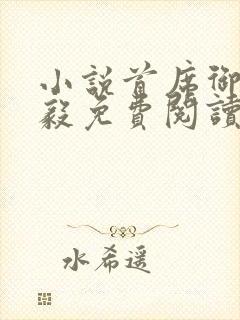 小說首席御
毅免費閱讀
水希遥